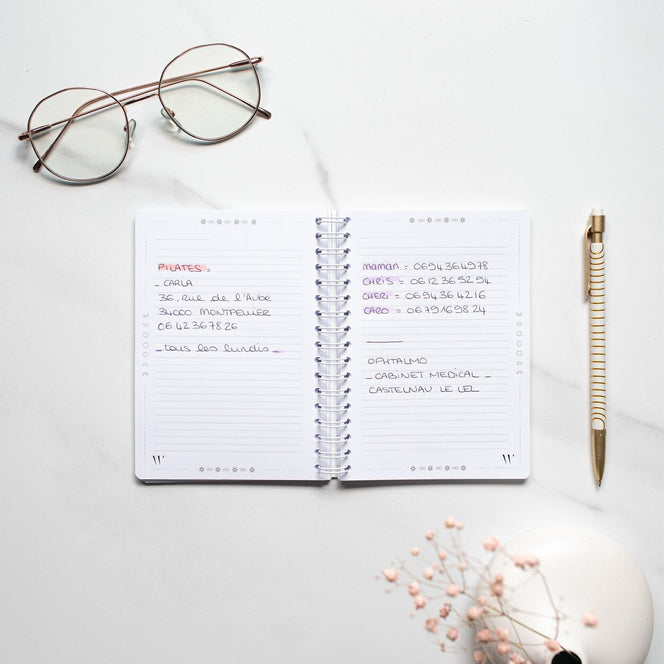 PILATES :
- CARLA
36, Rue de l'Aube
34000 MONTPELLIER
06 42 36 78 26
- tous les lundis -
W
maman = 0694364978
CHRIS = 0612365294
CHERI = 0694364216
CARO = 0679169824
OPHTALMO
- CABINET MEDICAL -
CASTELNAU LE LEZ
W